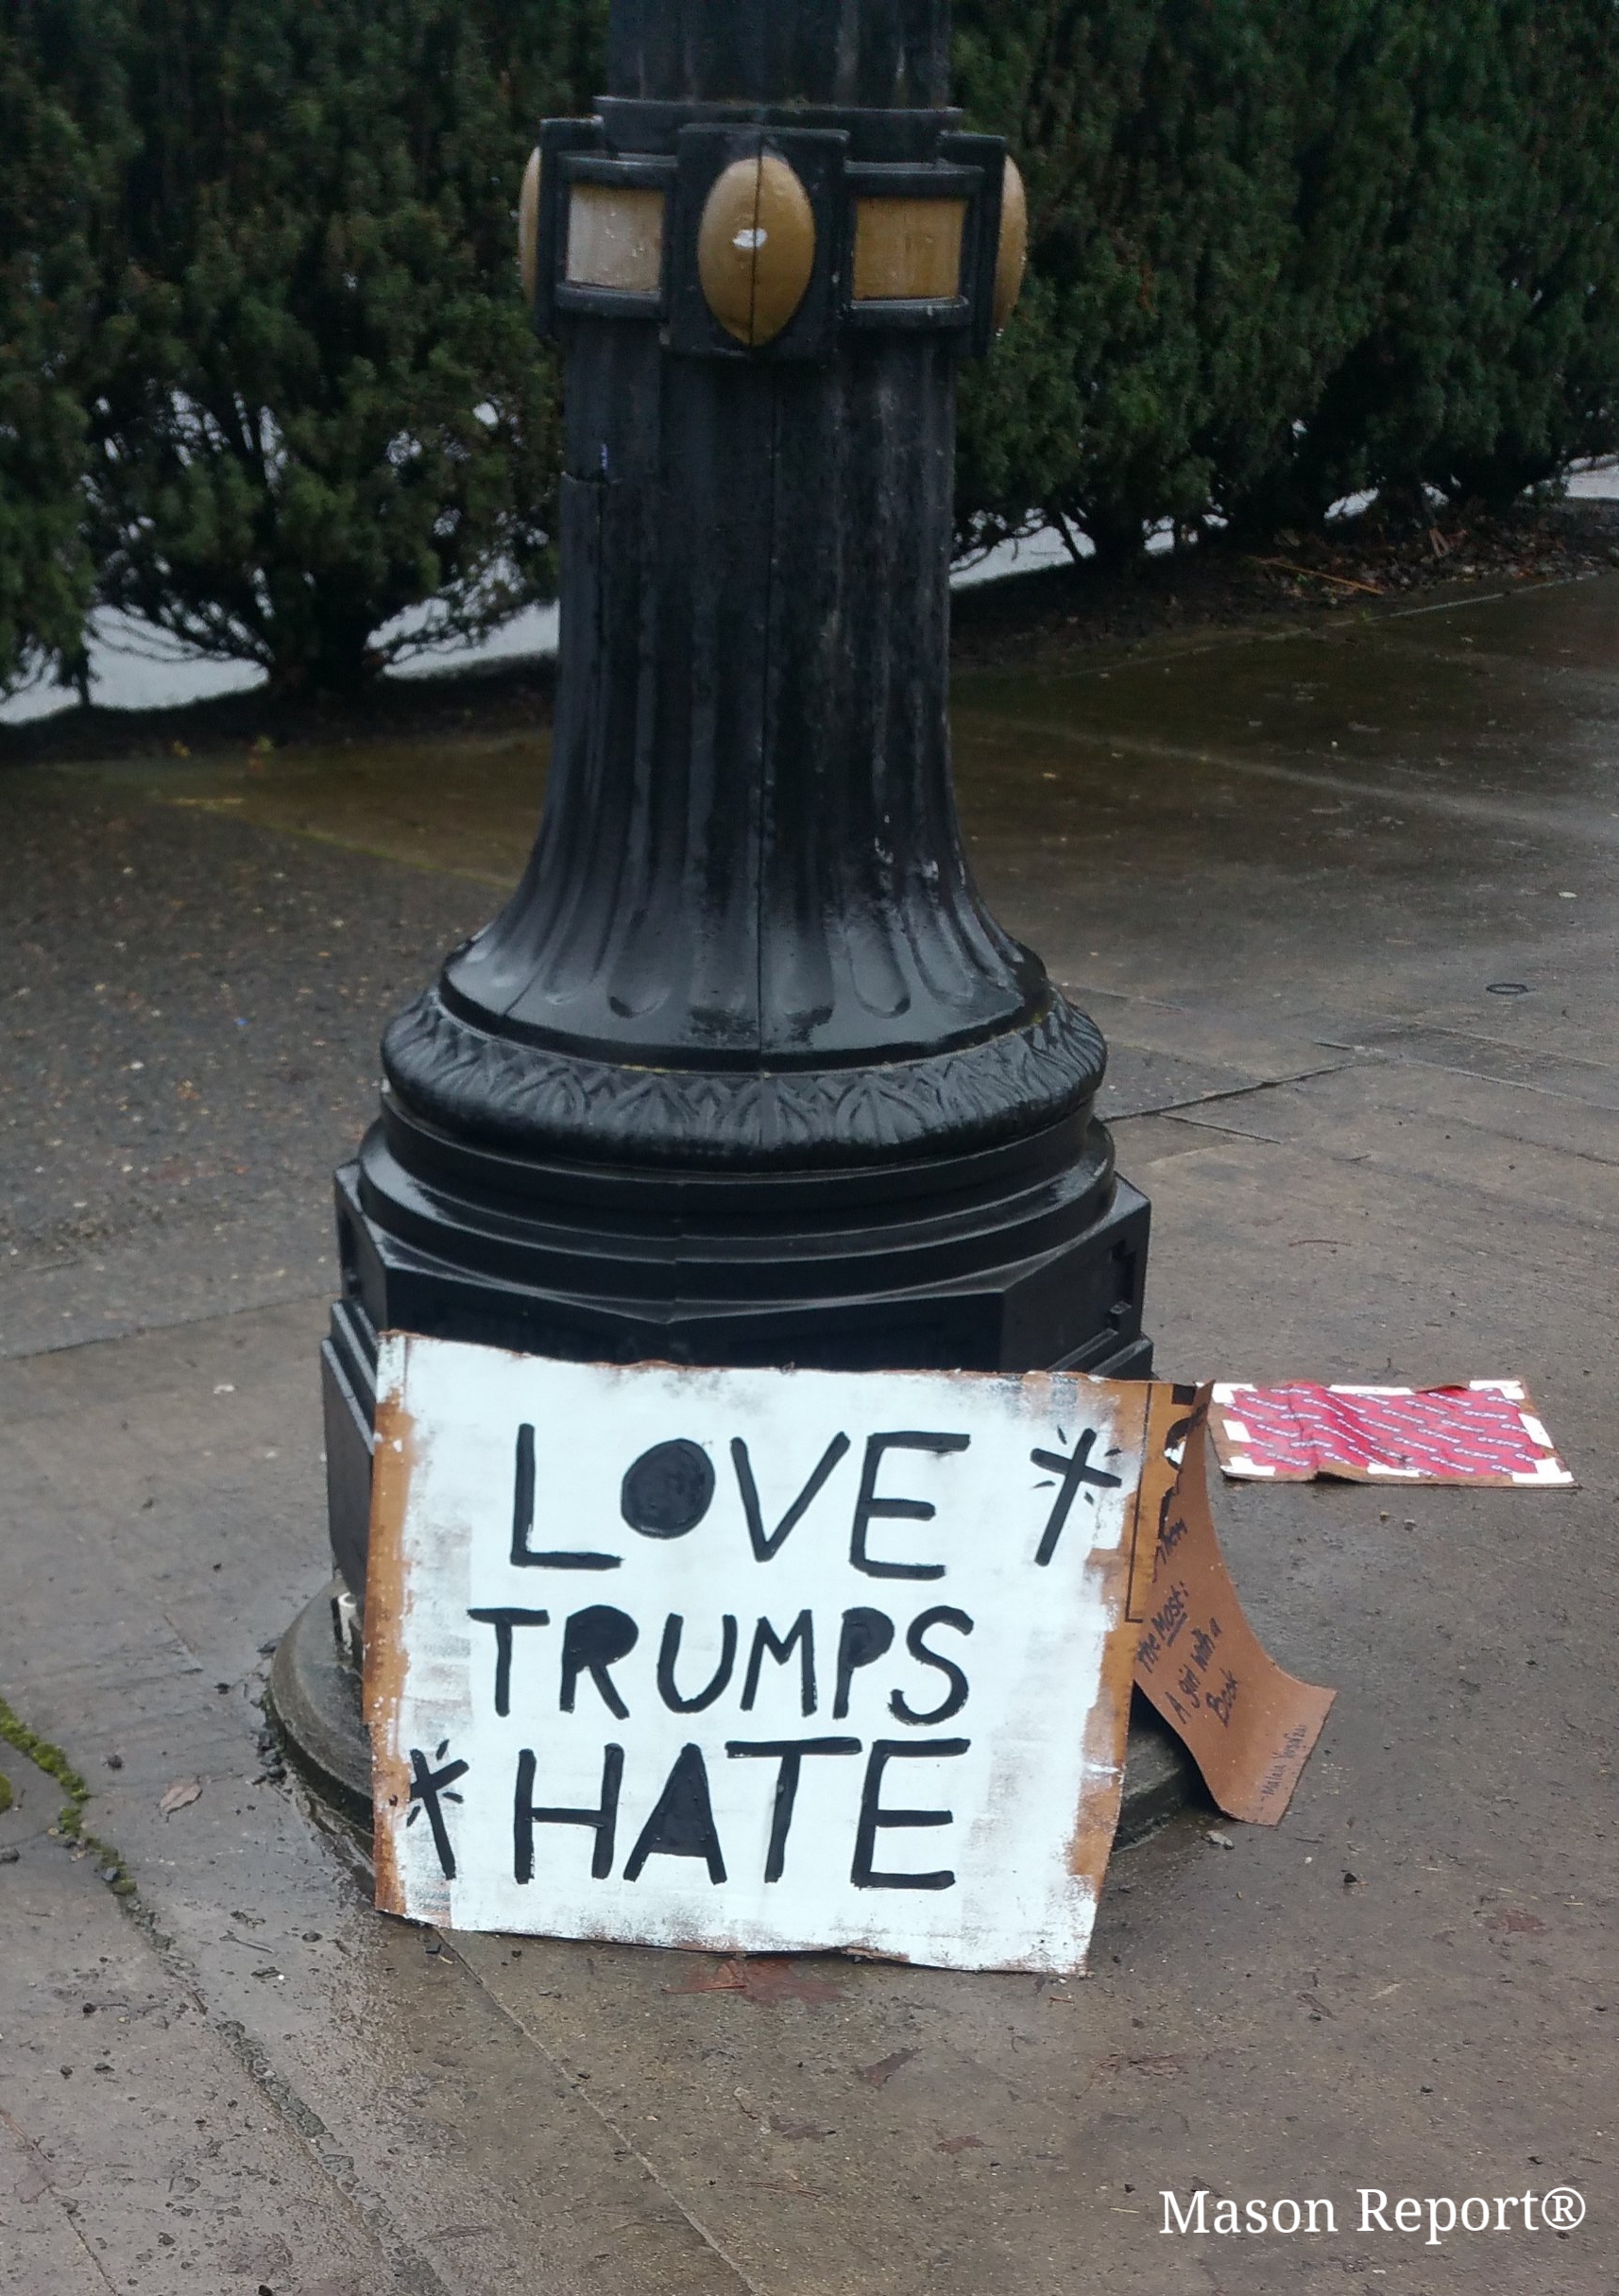 LOVE
TRUMPS
HATE
Them
The Most:
A girl with a
Book
-Malala Yousafzai
Mason Report®